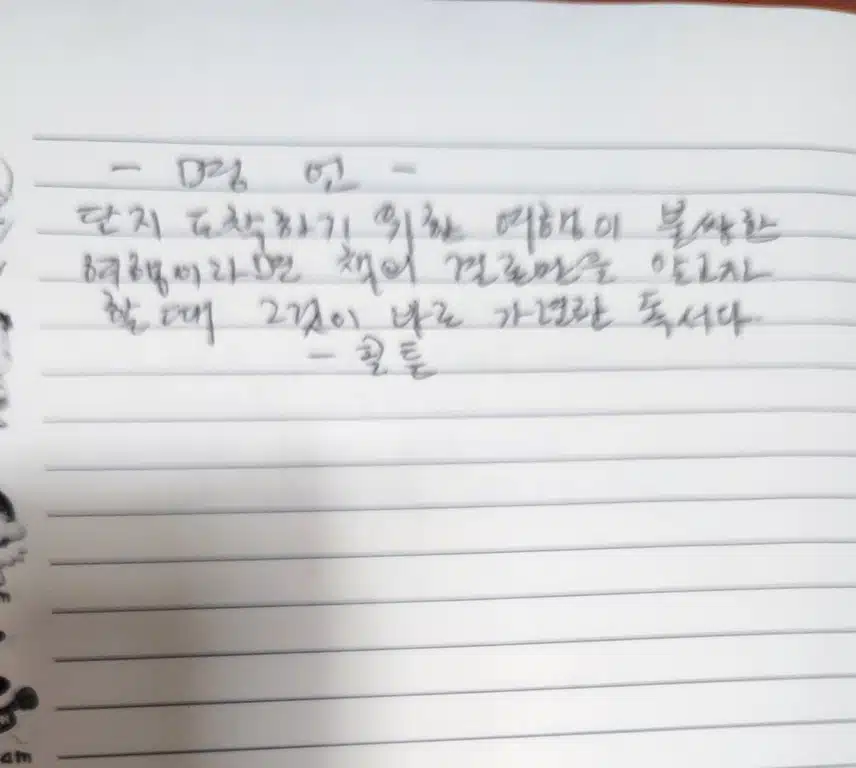 - 명 언 -
단지 도착하기 위한 여행이 불쌍한
여행이라면 책의 결론만을 알고자
할 때 그것이 바로 가련한 독서다.
- 힐튼
am